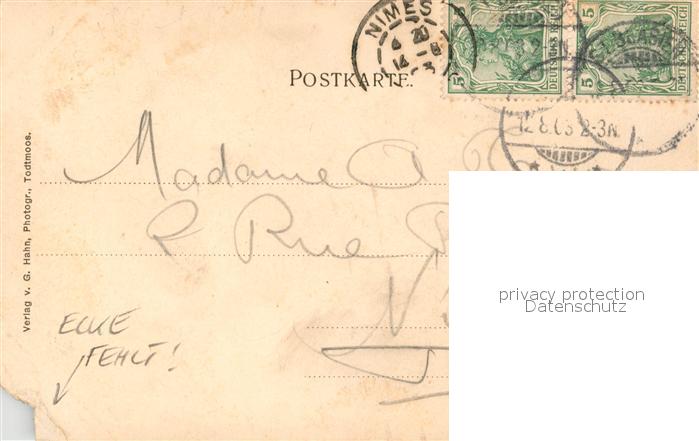 NIMES
5 DEUTSCHES REICH
5 DEUTSCHES REICH
POSTKARTE.
12.8.03 2-3N
Madame
2 Rue
Verlag v. G. Hahn, Photogr., Todtmoos.
ECKE
FEHLT!
privacy protection
Datenschutz